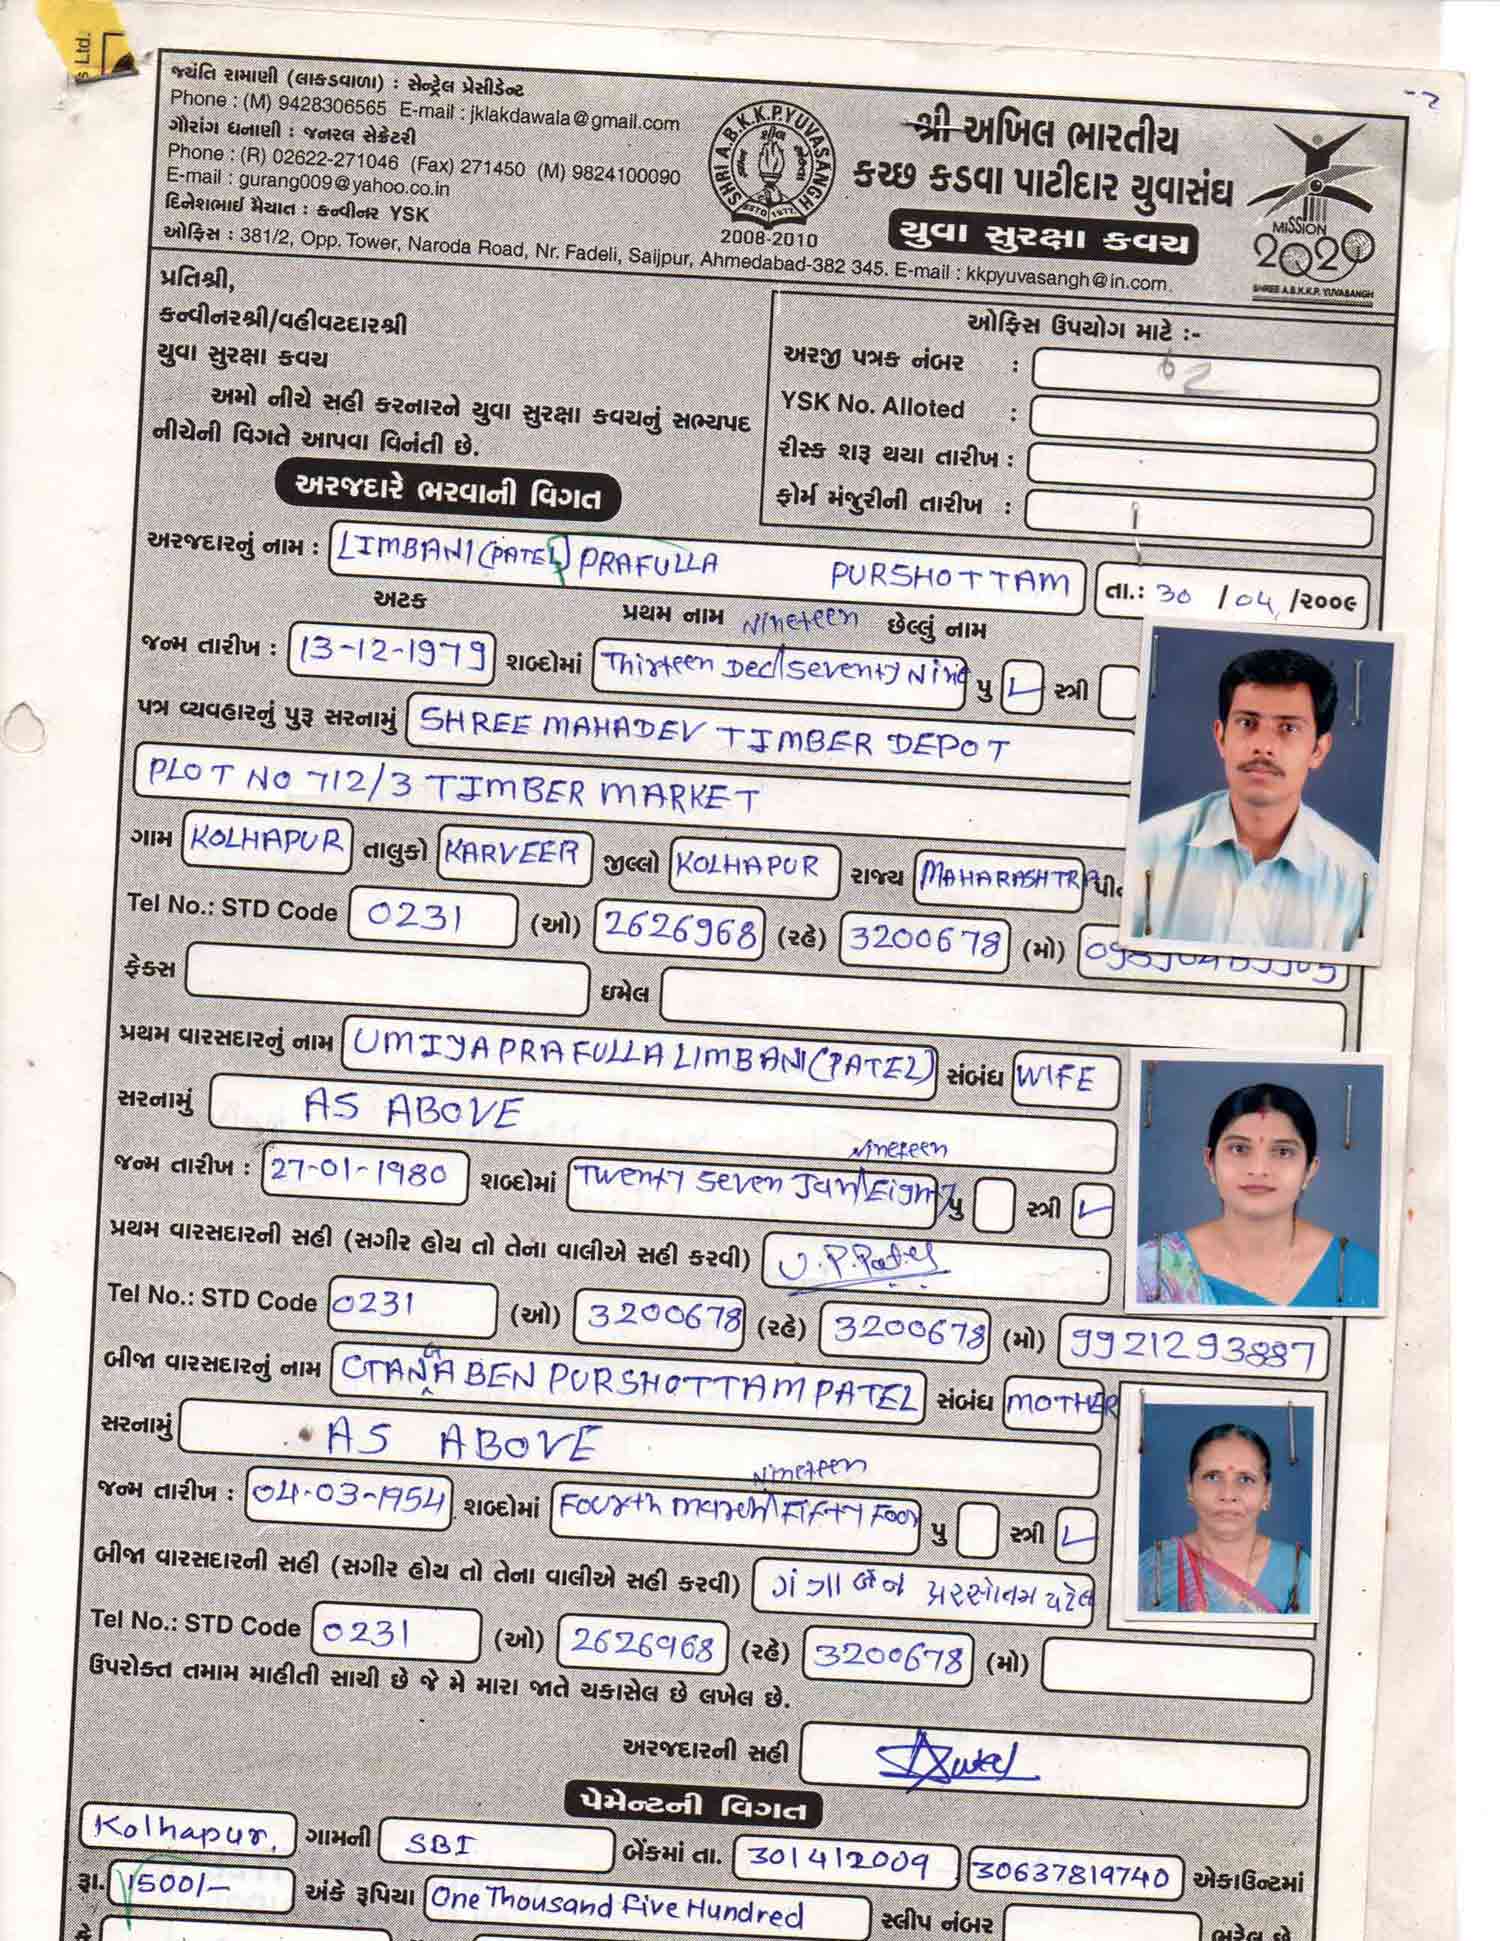 s Ltd.
જયંતિ રામાણી (લાકડવાળા) : સેન્ટ્રલ પ્રેસીડેન્ટ
Phone : (M) 9428306565 E-mail : jklakdawala@gmail.com
ગૌરાંગ ધનાણી : જનરલ સેક્રેટરી
Phone : (R) 02622-271046 (Fax) 271450 (M) 9824100090
E-mail : gurang009@yahoo.co.in
દિનેશભાઈ મૈયાત : કન્વીનર YSK
ઓફિસ : 381/2, Opp. Tower, Naroda Road, Nr. Fadeli, Saijpur, Ahmedabad-382 345. E-mail : kkpyuvasangh@in.com.
SHRI A.B.K.K.P.YUVASANGH
ESTD 1977
2008-2010
શ્રી અખિલ ભારતીય
કચ્છ કડવા પાટીદાર યુવાસંઘ
યુવા સુરક્ષા કવચ
MISSION
2020
SHREE A.B.K.K.P. YUVASANGH
પ્રતિશ્રી,
કન્વીનરશ્રી/વહીવટદારશ્રી
યુવા સુરક્ષા કવચ
અમો નીચે સહી કરનારને યુવા સુરક્ષા કવચનું સભ્યપદ
નીચેની વિગતે આપવા વિનંતી છે.
ઓફિસ ઉપયોગ માટે :-
અરજી પત્રક નંબર : 62
YSK No. Alloted :
રીસ્ક શરૂ થયા તારીખ :
ફોર્મ મંજુરીની તારીખ :
અરજદારે ભરવાની વિગત
અરજદારનું નામ : LIMBANI (PATEL) PRAFULLA PURSHOTTAM તા.: 30 / 04 /૨૦૦૯
અટક પ્રથમ નામ છેલ્લું નામ
Nineteen
જન્મ તારીખ : 13-12-1979 શબ્દોમાં Thirteen Dec/Seventy Nine પુ સ્ત્રી
પત્ર વ્યવહારનું પુરૂ સરનામું SHREE MAHADEV TIMBER DEPOT
PLOT NO 712/3 TIMBER MARKET
ગામ KOLHAPUR તાલુકો KARVEER જીલ્લો KOLHAPUR રાજ્ય MAHARASHTRA
Tel No.: STD Code 0231 (ઓ) 2626968 (રહે) 3200678 (મો)
ફેક્સ ઇમેલ
પ્રથમ વારસદારનું નામ UMIYA PRAFULLA LIMBANI (PATEL) સંબંધ WIFE
સરનામું AS ABOVE
Nineteen
જન્મ તારીખ : 27-01-1980 શબ્દોમાં Twenty Seven Jan/Eighty પુ સ્ત્રી
પ્રથમ વારસદારની સહી (સગીર હોય તો તેના વાલીએ સહી કરવી) U.P.Patel
Tel No.: STD Code 0231 (ઓ) 3200678 (રહે) 3200678 (મો) 9921293887
બીજા વારસદારનું નામ GANGABEN PURSHOTTAM PATEL સંબંધ MOTHER
સરનામું AS ABOVE
Nineteen
જન્મ તારીખ : 04-03-1954 શબ્દોમાં Fourth March/Fifty Four પુ સ્ત્રી
બીજા વારસદારની સહી (સગીર હોય તો તેના વાલીએ સહી કરવી) ગંગાબેન પરસોતમ પટેલ
Tel No.: STD Code 0231 (ઓ) 2626968 (રહે) 3200678 (મો)
ઉપરોક્ત તમામ માહીતી સાચી છે જે મે મારા જાતે ચકાસેલ છે લખેલ છે.
અરજદારની સહી
પેમેન્ટની વિગત
Kolhapur. ગામની SBI બેંકમાં તા. 30/4/2009 30637819740 એકાઉન્ટમાં
રૂા. 1500/- અંકે રૂપિયા One Thousand Five Hundred સ્લીપ નંબર ભરેલ છે